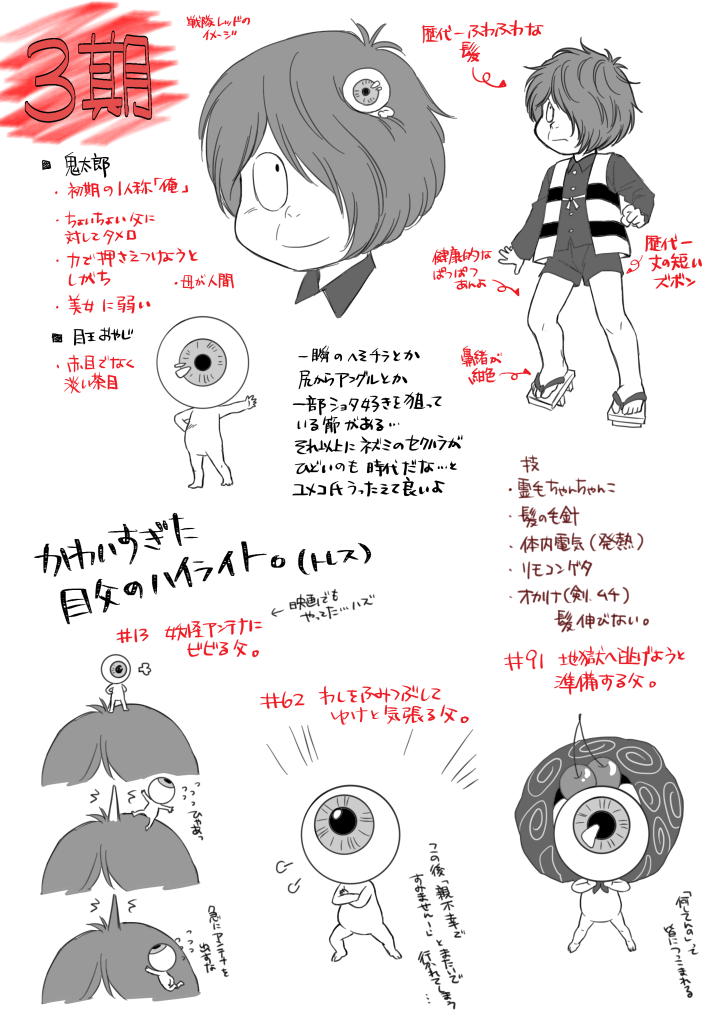 3期
戦隊レッドの
イメージ
歴代一ふわふわな
髪
■ 鬼太郎
・初期の1人称「俺」
・ちょいちょい父に
対してタメ口
・力で押さえつけようと
しがち
・母が人間
・美女に弱い
■ 目玉おやじ
・赤目でなく
淡い茶目
健康的な
ぱつぱつ
あんよ
歴代一
丈の短い
ズボン
鼻緒が
紺色
一瞬のヘソチラとか
尻からアングルとか
一部ショタ好きを狙って
いる節がある…
それ以上にネズミのセクハラが
ひどいのも時代だな…と
ユメコ氏うったえて良いよ
技
・霊毛ちゃんちゃんこ
・髪の毛針
・体内電気(発熱)
・リモコンゲタ
・オカリナ(剣、ムチ)
髪伸びない。
かわいすぎた
目父のハイライト。(トレス)
←映画でも
やってた…ハズ
#13 妖怪アンテナに
ビビる父。
ひゃあっ
急にアンテナを
出すな
#62 わしをふみつぶして
ゆけと気張る父。
この後「親不幸で
すみませんー!」とまたいで
行かれてしまう
…
#91 地獄へ逃げようと
準備する父。
「何してんの」って
皆につっこまれる